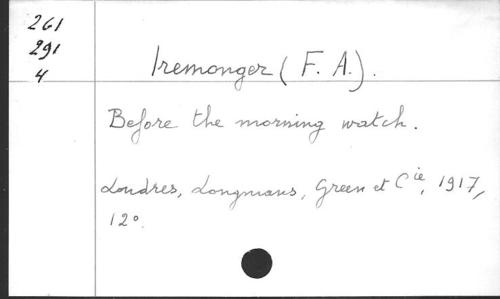 261
291
4
Iremonger (F. A.).
Before the morning watch.
Londres, Longmans, Green et Cie, 1917,
12°.